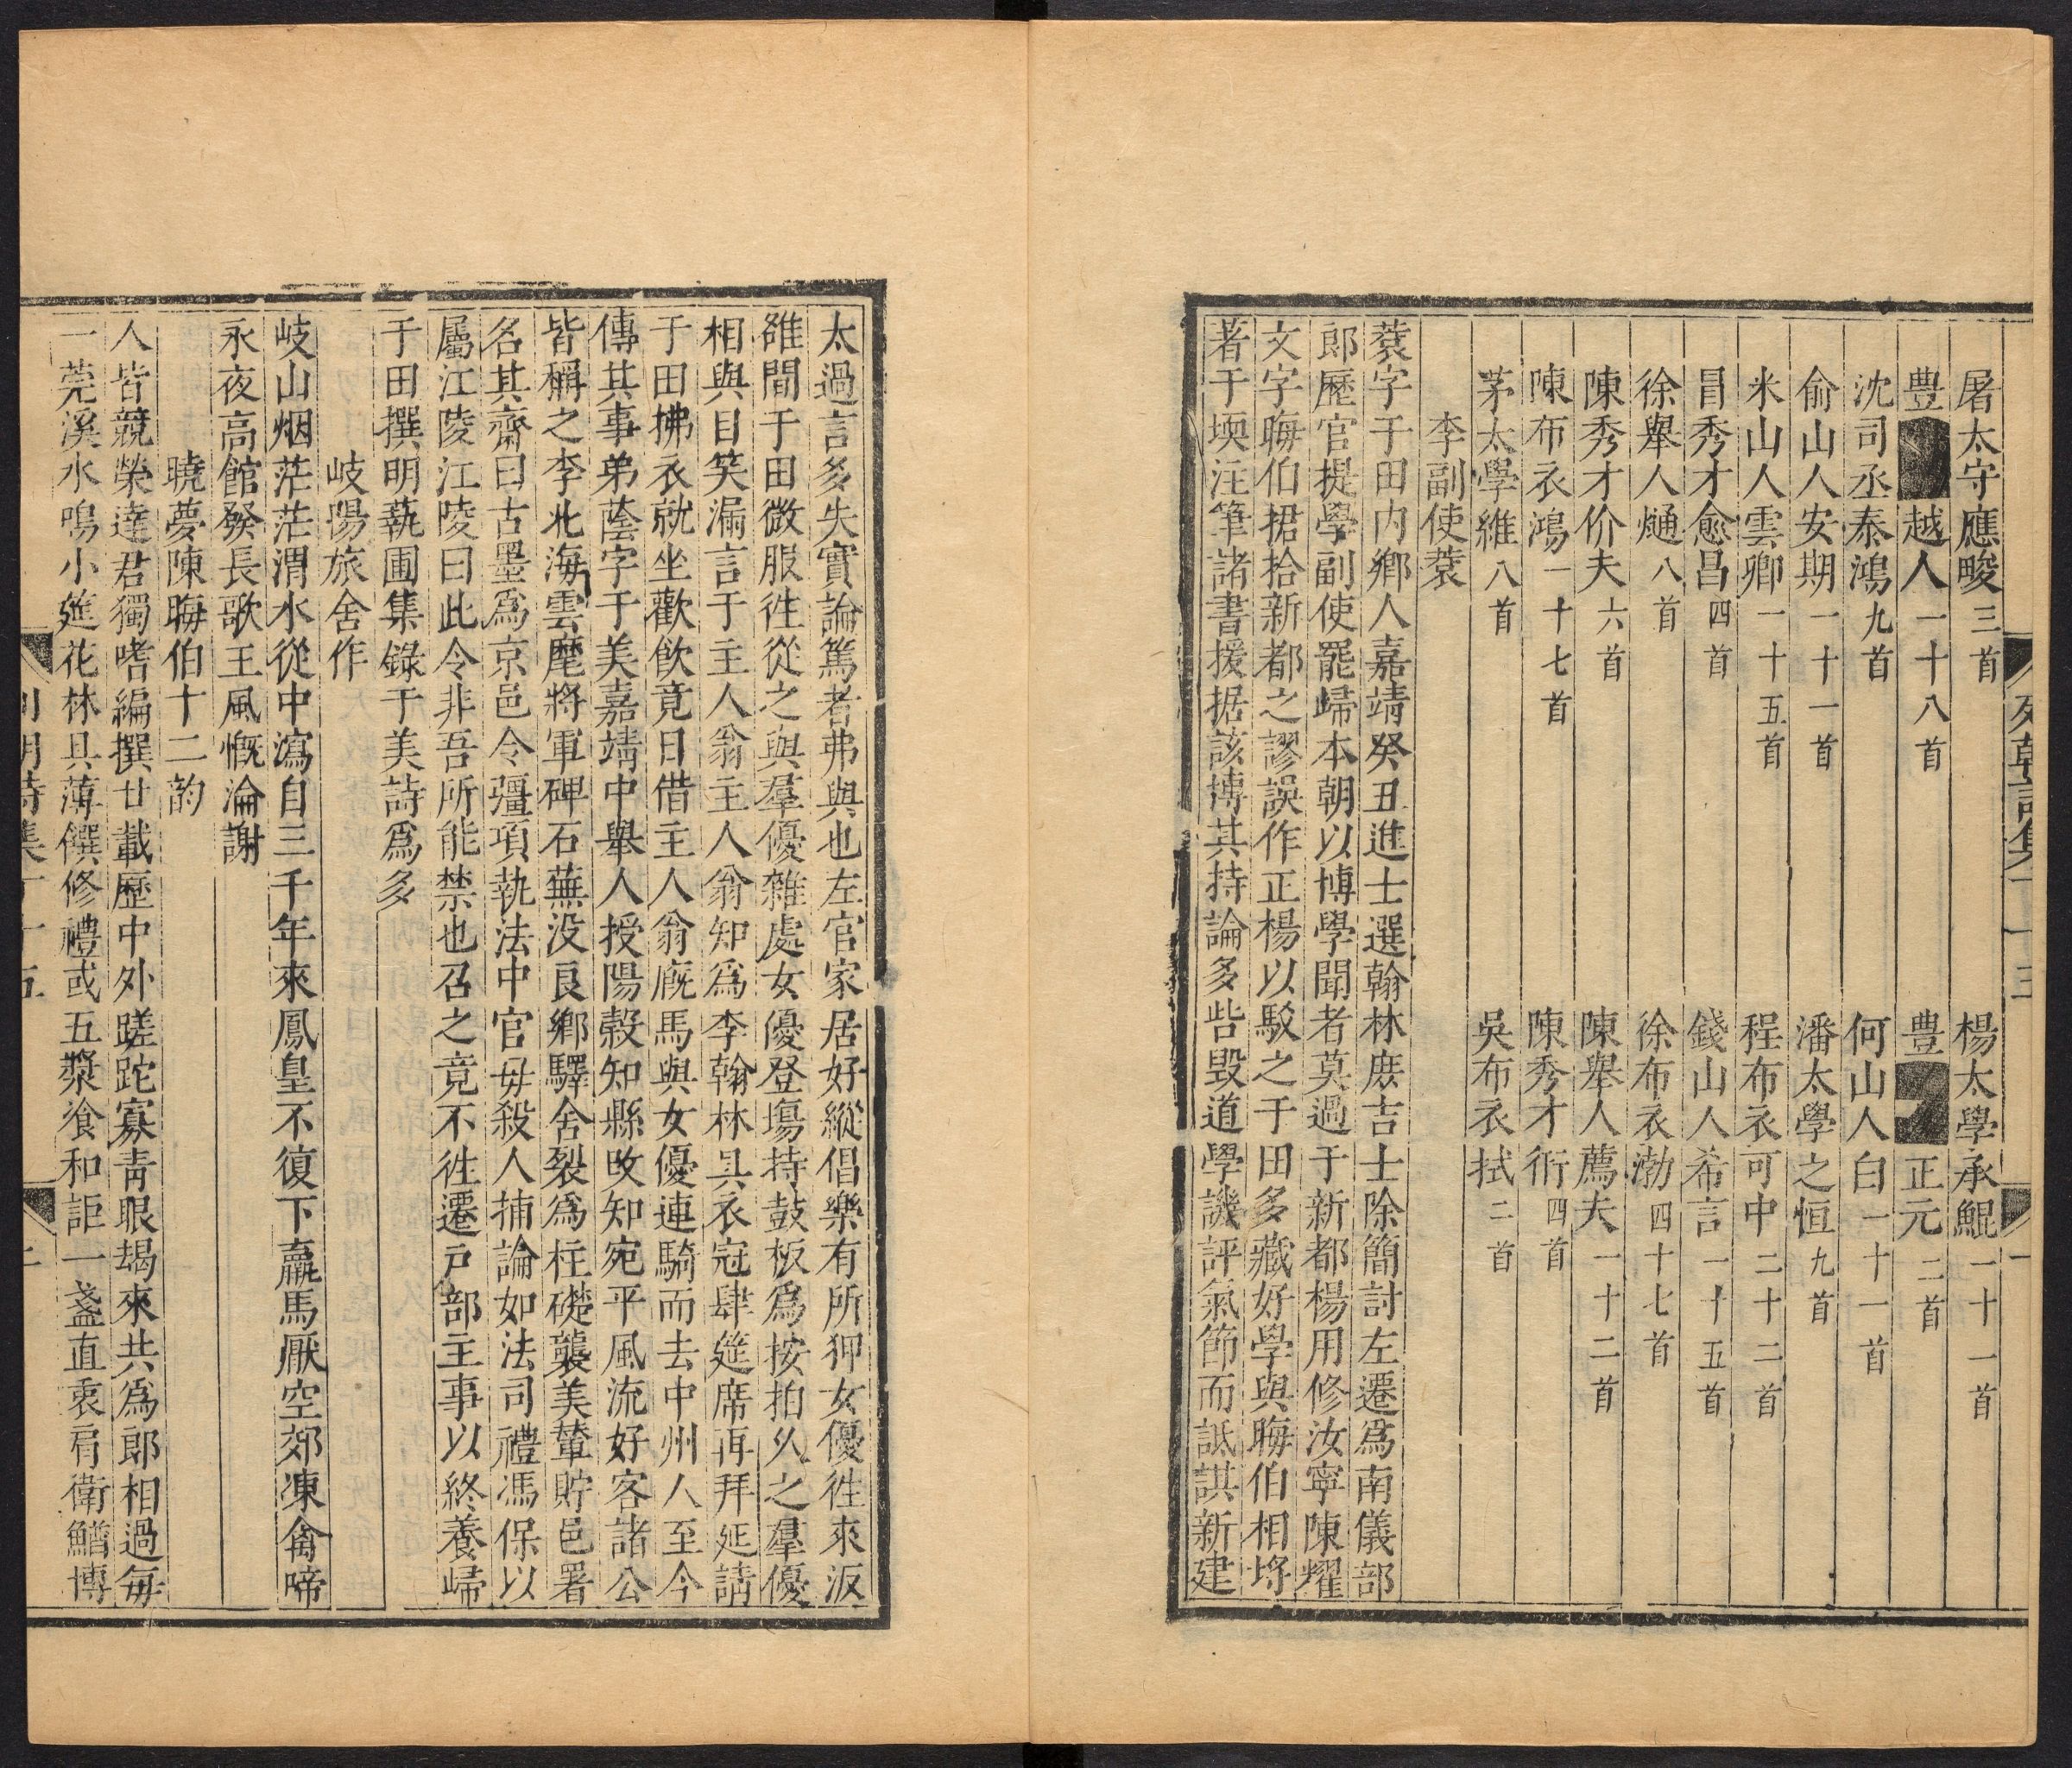 屠太守應畯三首　楊太學承鯤一十一首
豊　越人一十八首　豊　正元二首
沈司丞泰鴻九首　何山人白一十一首
俞山人安期一十一首　潘太學之恒九首
米山人雲卿一十五首　程布衣可中二十二首
冒秀才愈昌四首　錢山人希言一十五首
徐舉人熥八首　徐布衣渤四十七首
陳秀才价夫六首　陳舉人薦夫一十二首
陳布衣鴻一十七首　陳秀才衎四首
茅太學維八首　吳布衣拭二首
李副使蓘
蓘字于田内鄉人嘉靖癸丑進士選翰林庶吉士除簡討左遷爲南儀部
郎歷官提學副使罷歸本朝以博學聞者莫過于新都楊用修汝寧陳耀
文字晦伯捃拾新都之謬誤作正楊以駁之于田多藏好學與晦伯相埒
著于堧注筆諸書援据該博其持論多呰毁道學譏評氣節而詆諆新建
太過言多失實論篤者弗與也左官家居好縱倡樂有所狎女優徃來汳
雒間于田微服徃從之與羣優雜處女優登塲持鼓板爲按拍久之羣優
相與目笑漏言于主人翁主人翁知爲李翰林具衣冠肆筵席再拜延請
于田拂衣就坐歡飲竟日借主人翁廐馬與女優連騎而去中州人至今
傳其事弟蔭字于美嘉靖中舉人授陽榖知縣改知宛平風流好客諸公
皆稱之李北海雲麾將軍碑石蕪没良鄉驛舍裂爲柱礎襲美輦貯邑署
名其齋曰古墨爲京邑令彊項執法中官毋殺人捕論如法司禮馮保以
屬江陵江陵曰此令非吾所能禁也召之竟不徃遷戸部主事以終養歸
于田撰明蓺圃集錄于美詩爲多
岐陽旅舍作
岐山烟茫茫渭水從中瀉自三千年來鳳皇不復下羸馬厭空郊凍禽啼
永夜高館發長歌王風慨淪謝
曉夢陳晦伯十二韵
人皆競榮達君獨嗜編撰廿載歷中外蹉跎寡青眼朅來共爲郎相過每
一莞溪水鳴小筵花林具薄饌修禮或五漿飡和詎一盞直裵肩衛鰌博
列朝詩集丁十五